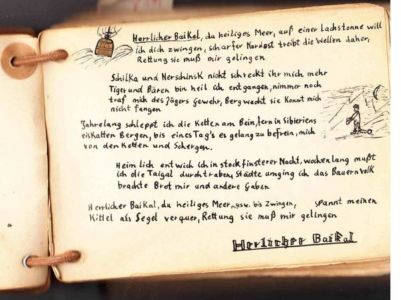 Herrlicher Baikal, du heiliges Meer, auf einer Lachstonne will
ich dich zwingen, scharfer Nordost treibt die Wellen daher,
Rettung sie muß mir gelingen
Schilka und Nerschinsk nicht schreckt ihr mich mehr
Tiger und Bären bin heil ich entgangen, nimmer noch
traf mich des Jägers Gewehr, Bergwacht sie konnt mich
nicht fangen
Jahrelang schleppt ich die Ketten am Bein, fern in Sibieriens
eiskalten Bergen, bis eines Tag's es gelang zu befrein, mich
von den Ketten und Schergen.
Heimlich entwich ich in stockfinsterer Nacht, wochenlang mußt
ich die Taiga durchtraben, Städte umging ich das Bauernvolk
brachte Brot mir und andere Gaben
Herrlicher Baikal, du heiliges Meer, usw. bis Zwingen, spannt meinen
Kittel als Segel verquer, Rettung sie muß mir gelingen
Herlicher Baikal